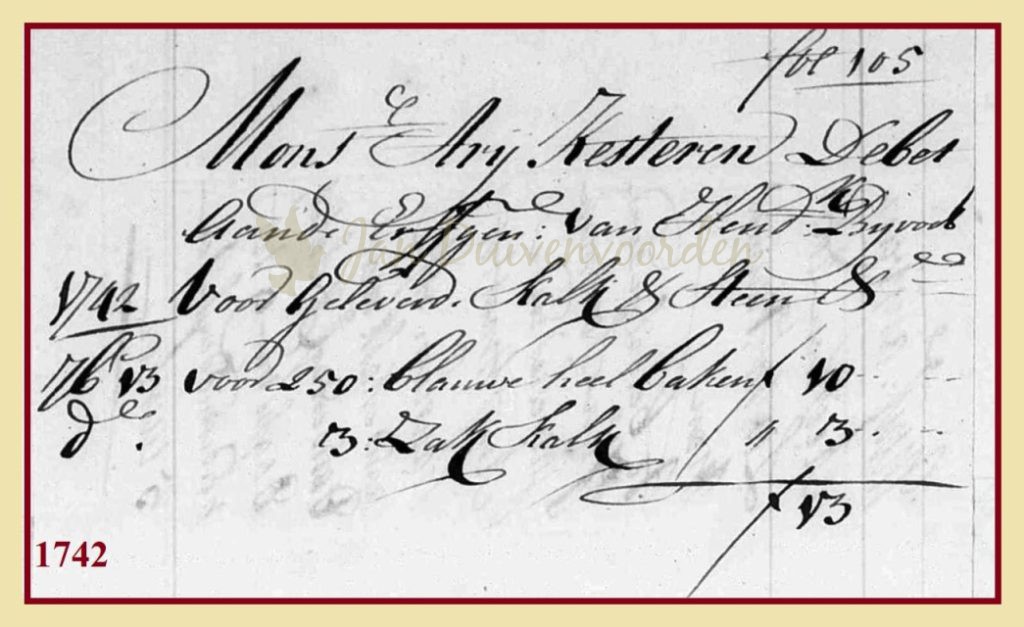 fol 105
Monsr Arij Kesteren Debet
Aande Erffgen: van Hend:k Bijvoet
1742 voor geleverd. Kalk & Steen &
13 voor 250: blauwe heel baken f 10 - -
do. 3: Zak Kalk " 3 - -
f 13
Jan Duivenvoorden
1742